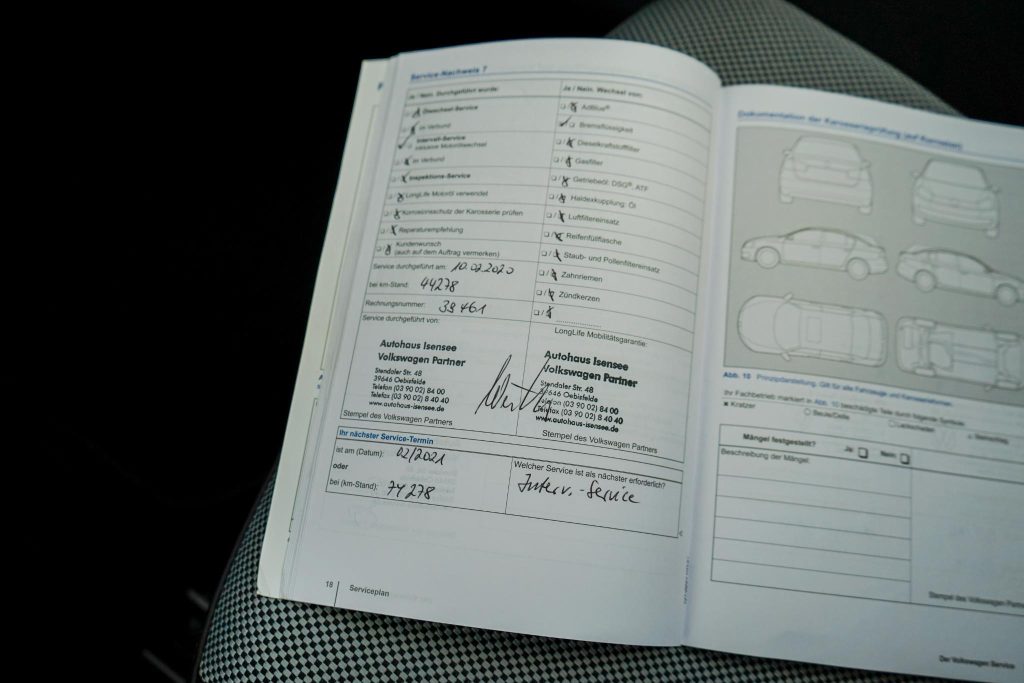 Service-Nachweis 7
Ja / Nein. Durchgeführt wurde:
Ölwechsel-Service
im Verbund
Intervall-Service
inklusive Motorölwechsel
im Verbund
Inspektions-Service
LongLife Motoröl verwendet
Korrosionsschutz der Karosserie prüfen
Reparaturempfehlung
Kundenwunsch
(auch auf dem Auftrag vermerken)
Service durchgeführt am: 10.02.2020
bei km-Stand: 44278
Rechnungsnummer: 39461
Service durchgeführt von:
Autohaus Isensee
Volkswagen Partner
Stendaler Str. 48
39646 Oebisfelde
Telefon (03 90 02) 84 00
Telefax (03 90 02) 8 40 40
www.autohaus-isensee.de
Stempel des Volkswagen Partners
Ja / Nein. Wechsel von:
AdBlue®
Bremsflüssigkeit
Dieselkraftstofffilter
Gasfilter
Getriebeöl: DSG®, ATF
Haldexkupplung: Öl
Luftfiltereinsatz
Reifenfüllflasche
Staub- und Pollenfiltereinsatz
Zahnriemen
Zündkerzen
LongLife Mobilitätsgarantie:
Autohaus Isensee
Volkswagen Partner
Stendaler Str. 48
39646 Oebisfelde
Telefon (03 90 02) 84 00
Telefax (03 90 02) 8 40 40
www.autohaus-isensee.de
Stempel des Volkswagen Partners
Ihr nächster Service-Termin
ist am (Datum): 02/2021
oder
bei (km-Stand): 74278
Welcher Service ist als nächster erforderlich?
Interv.-Service
18 Serviceplan
Dokumentation der Karosserieprüfung (auf Korrosion)
Abb. 10 Prinzipdarstellung. Gilt für alle Fahrzeuge und Karosserieformen.
Ihr Fachbetrieb markiert in Abb. 10 beschädigte Teile durch folgende Symbole:
Kratzer
Beule/Delle
Lackschaden
Steinschlag
Mängel festgestellt?
Ja:
Nein:
Beschreibung der Mängel:
Stempel des Volkswagen Partners
Der Volkswagen Service